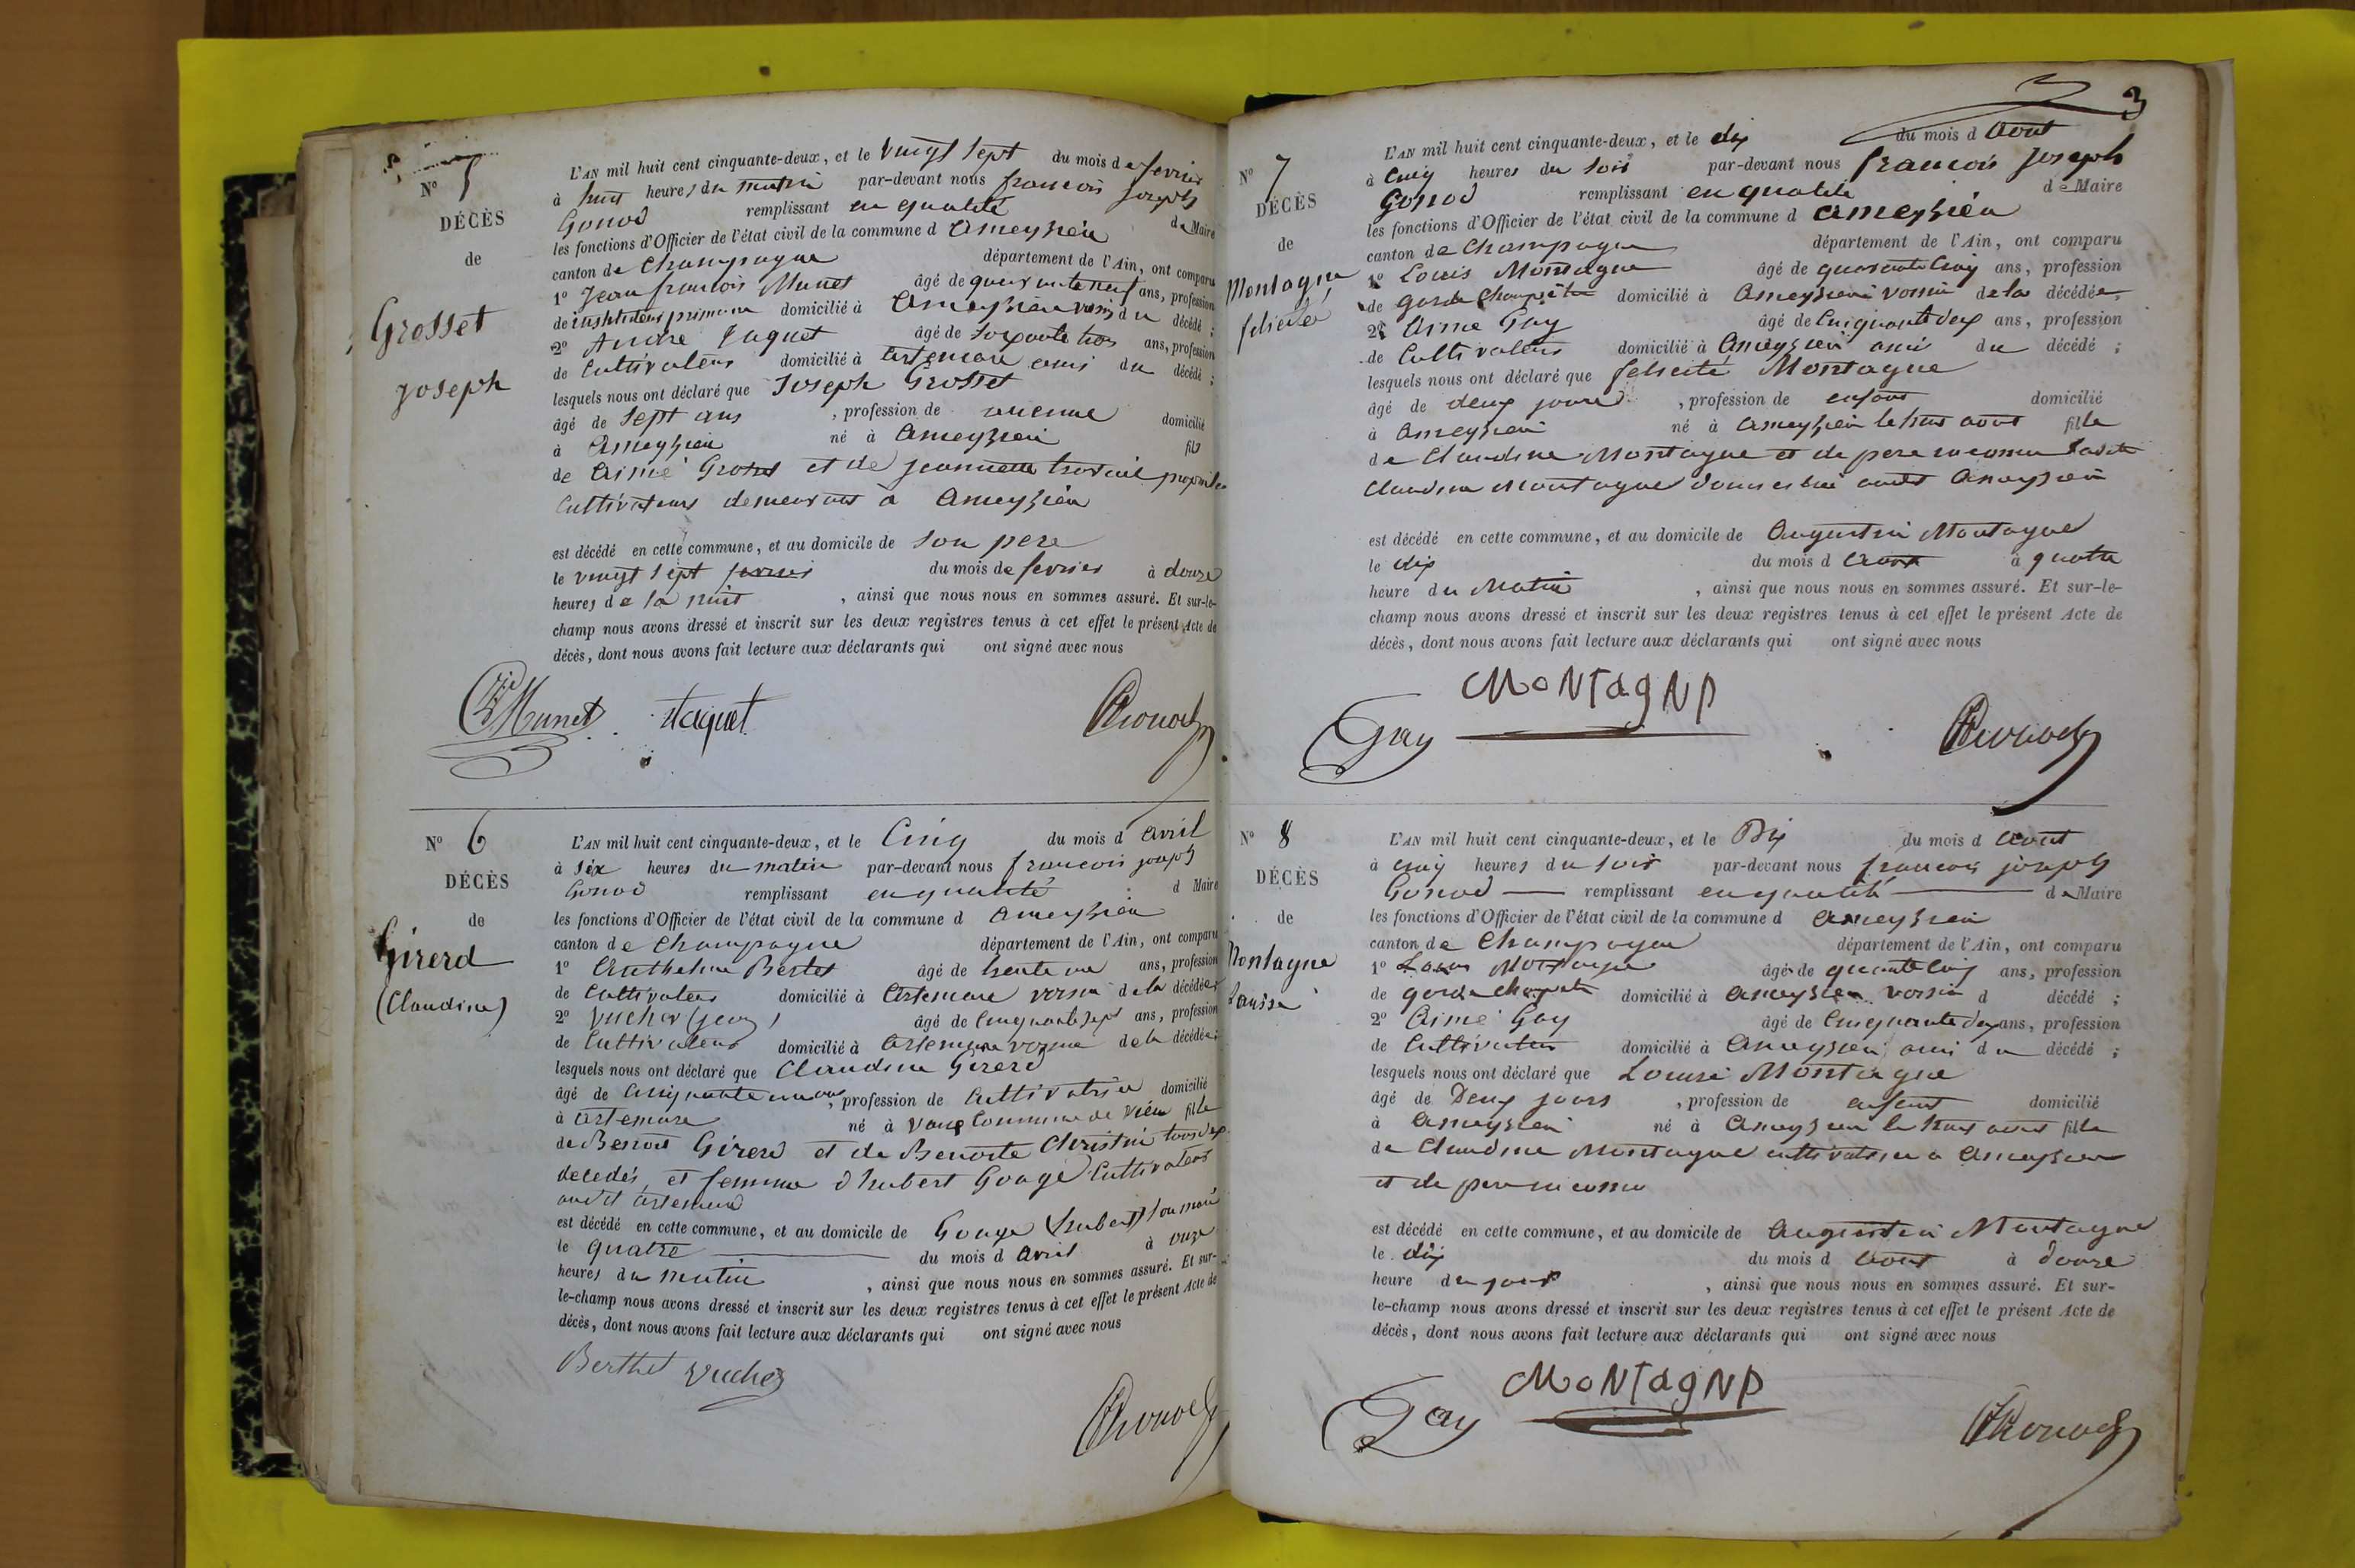 N° 5
DÉCÈS
de
Grosset
Joseph
L'AN mil huit cent cinquante-deux, et le vingt sept du mois de fevrier
à huit heures du matin par-devant nous francois joseph
Gonod remplissant en qualité de Maire
les fonctions d'Officier de l'état civil de la commune d ameyzieu
canton de Champagne département de l'Ain, ont comparu
1° Jean francois Munet âgé de quarante neuf ans, profession
de instituteur primaire domicilié à Ameyzieu voisin du décédé ;
2° André Jaquet âgé de soixante trois ans, profession
de Cultivateur domicilié à artemare ami du décédé ;
lesquels nous ont déclaré que Joseph Grosset
âgé de sept ans , profession de aucune domicilié
à Ameyzieu né à Ameyzieu fils
de Aimé Grosset et de jeannette
Cultivateurs demeurant à Ameyzieu
est décédé en cette commune, et au domicile de son pere
le vingt sept fevrier du mois de fevrier à douze
heures de la nuit , ainsi que nous nous en sommes assuré. Et sur-le-
champ nous avons dressé et inscrit sur les deux registres tenus à cet effet le présent Acte de
décès, dont nous avons fait lecture aux déclarants qui ont signé avec nous
Munet Jaquet Gonod
N° 6
DÉCÈS
de
Girerd
(Claudine)
L'AN mil huit cent cinquante-deux, et le Cinq du mois d avril
à six heures du matin par-devant nous francois joseph
Gonod remplissant en qualité d Maire
les fonctions d'Officier de l'état civil de la commune d ameyzieu
canton de Champagne département de l'Ain, ont comparu
1° Anthelme Bertet âgé de trente un ans, profession
de Cultivateur domicilié à Artemare voisin de la décédée
2° Vucher (jean) âgé de Cinquante sept ans, profession
de Cultivateur domicilié à artemare voisin de la décédée ;
lesquels nous ont déclaré que Claudine Girerd
âgé de cinquante un ans , profession de Cultivatrice domicilié
à artemare né à Vaux Commune de Vieu fille
de Benoit Girerd et de Benoite Christin tous deux
decedés, et femme d hubert Gouge Cultivateur
audit artemare
est décédé en cette commune, et au domicile de Gouge (hubert) son mari
le quatre du mois d avril à onze
heures du matin , ainsi que nous nous en sommes assuré. Et sur-
le-champ nous avons dressé et inscrit sur les deux registres tenus à cet effet le présent Acte de
décès, dont nous avons fait lecture aux déclarants qui ont signé avec nous
Berthet Vucher Gonod
3
N° 7
DÉCÈS
de
Montagne
felicité
L'AN mil huit cent cinquante-deux, et le dix du mois d Aout
à cinq heures du soir par-devant nous francois joseph
Gonod remplissant en qualité de Maire
les fonctions d'Officier de l'état civil de la commune d ameyzieu
canton de Champagne département de l'Ain, ont comparu
1° Louis Montagne âgé de quarante Cinq ans, profession
de garde Champêtre domicilié à Ameyzieu voisin de la décédée,
2° Aimé Gay âgé de Cinquante deux ans, profession
de Cultivateur domicilié à Ameyzieu ami du décédé ;
lesquels nous ont déclaré que felicité Montagne
âgé de deux jours , profession de enfant domicilié
à Ameyzieu né à Ameyzieu le huit aout fille
de Claudine Montagne et de pere inconnu ladite
Claudine Montagne domiciliée audit Ameyzieu
est décédé en cette commune, et au domicile de Augustin Montagne
le dix du mois d Aout à quatre
heure du Matin , ainsi que nous nous en sommes assuré. Et sur-le-
champ nous avons dressé et inscrit sur les deux registres tenus à cet effet le présent Acte de
décès, dont nous avons fait lecture aux déclarants qui ont signé avec nous
Gay MoNTagNe Gonod
N° 8
DÉCÈS
de
Montagne
Louise
L'AN mil huit cent cinquante-deux, et le Dix du mois d Aout
à cinq heures du soir par-devant nous francois joseph
Gonod remplissant en qualité de Maire
les fonctions d'Officier de l'état civil de la commune d ameyzieu
canton de Champagne département de l'Ain, ont comparu
1° Louis Montagne âgé de quarante Cinq ans, profession
de garde champetre domicilié à ameyzieu voisin d décédé ;
2° Aimé Gay âgé de Cinquante deux ans, profession
de Cultivateur domicilié à Ameyzieu ami du décédé ;
lesquels nous ont déclaré que Louise Montagne
âgé de Deux jours , profession de enfant domicilié
à Ameyzieu né à Ameyzieu le huit aout fille
de Claudine Montagne cultivatrice à Ameyzieu
et de pere inconnu
est décédé en cette commune, et au domicile de Augustin Montagne
le dix du mois d Aout à douze
heure du jour , ainsi que nous nous en sommes assuré. Et sur-
le-champ nous avons dressé et inscrit sur les deux registres tenus à cet effet le présent Acte de
décès, dont nous avons fait lecture aux déclarants qui ont signé avec nous
Gay MoNTagNe Gonod